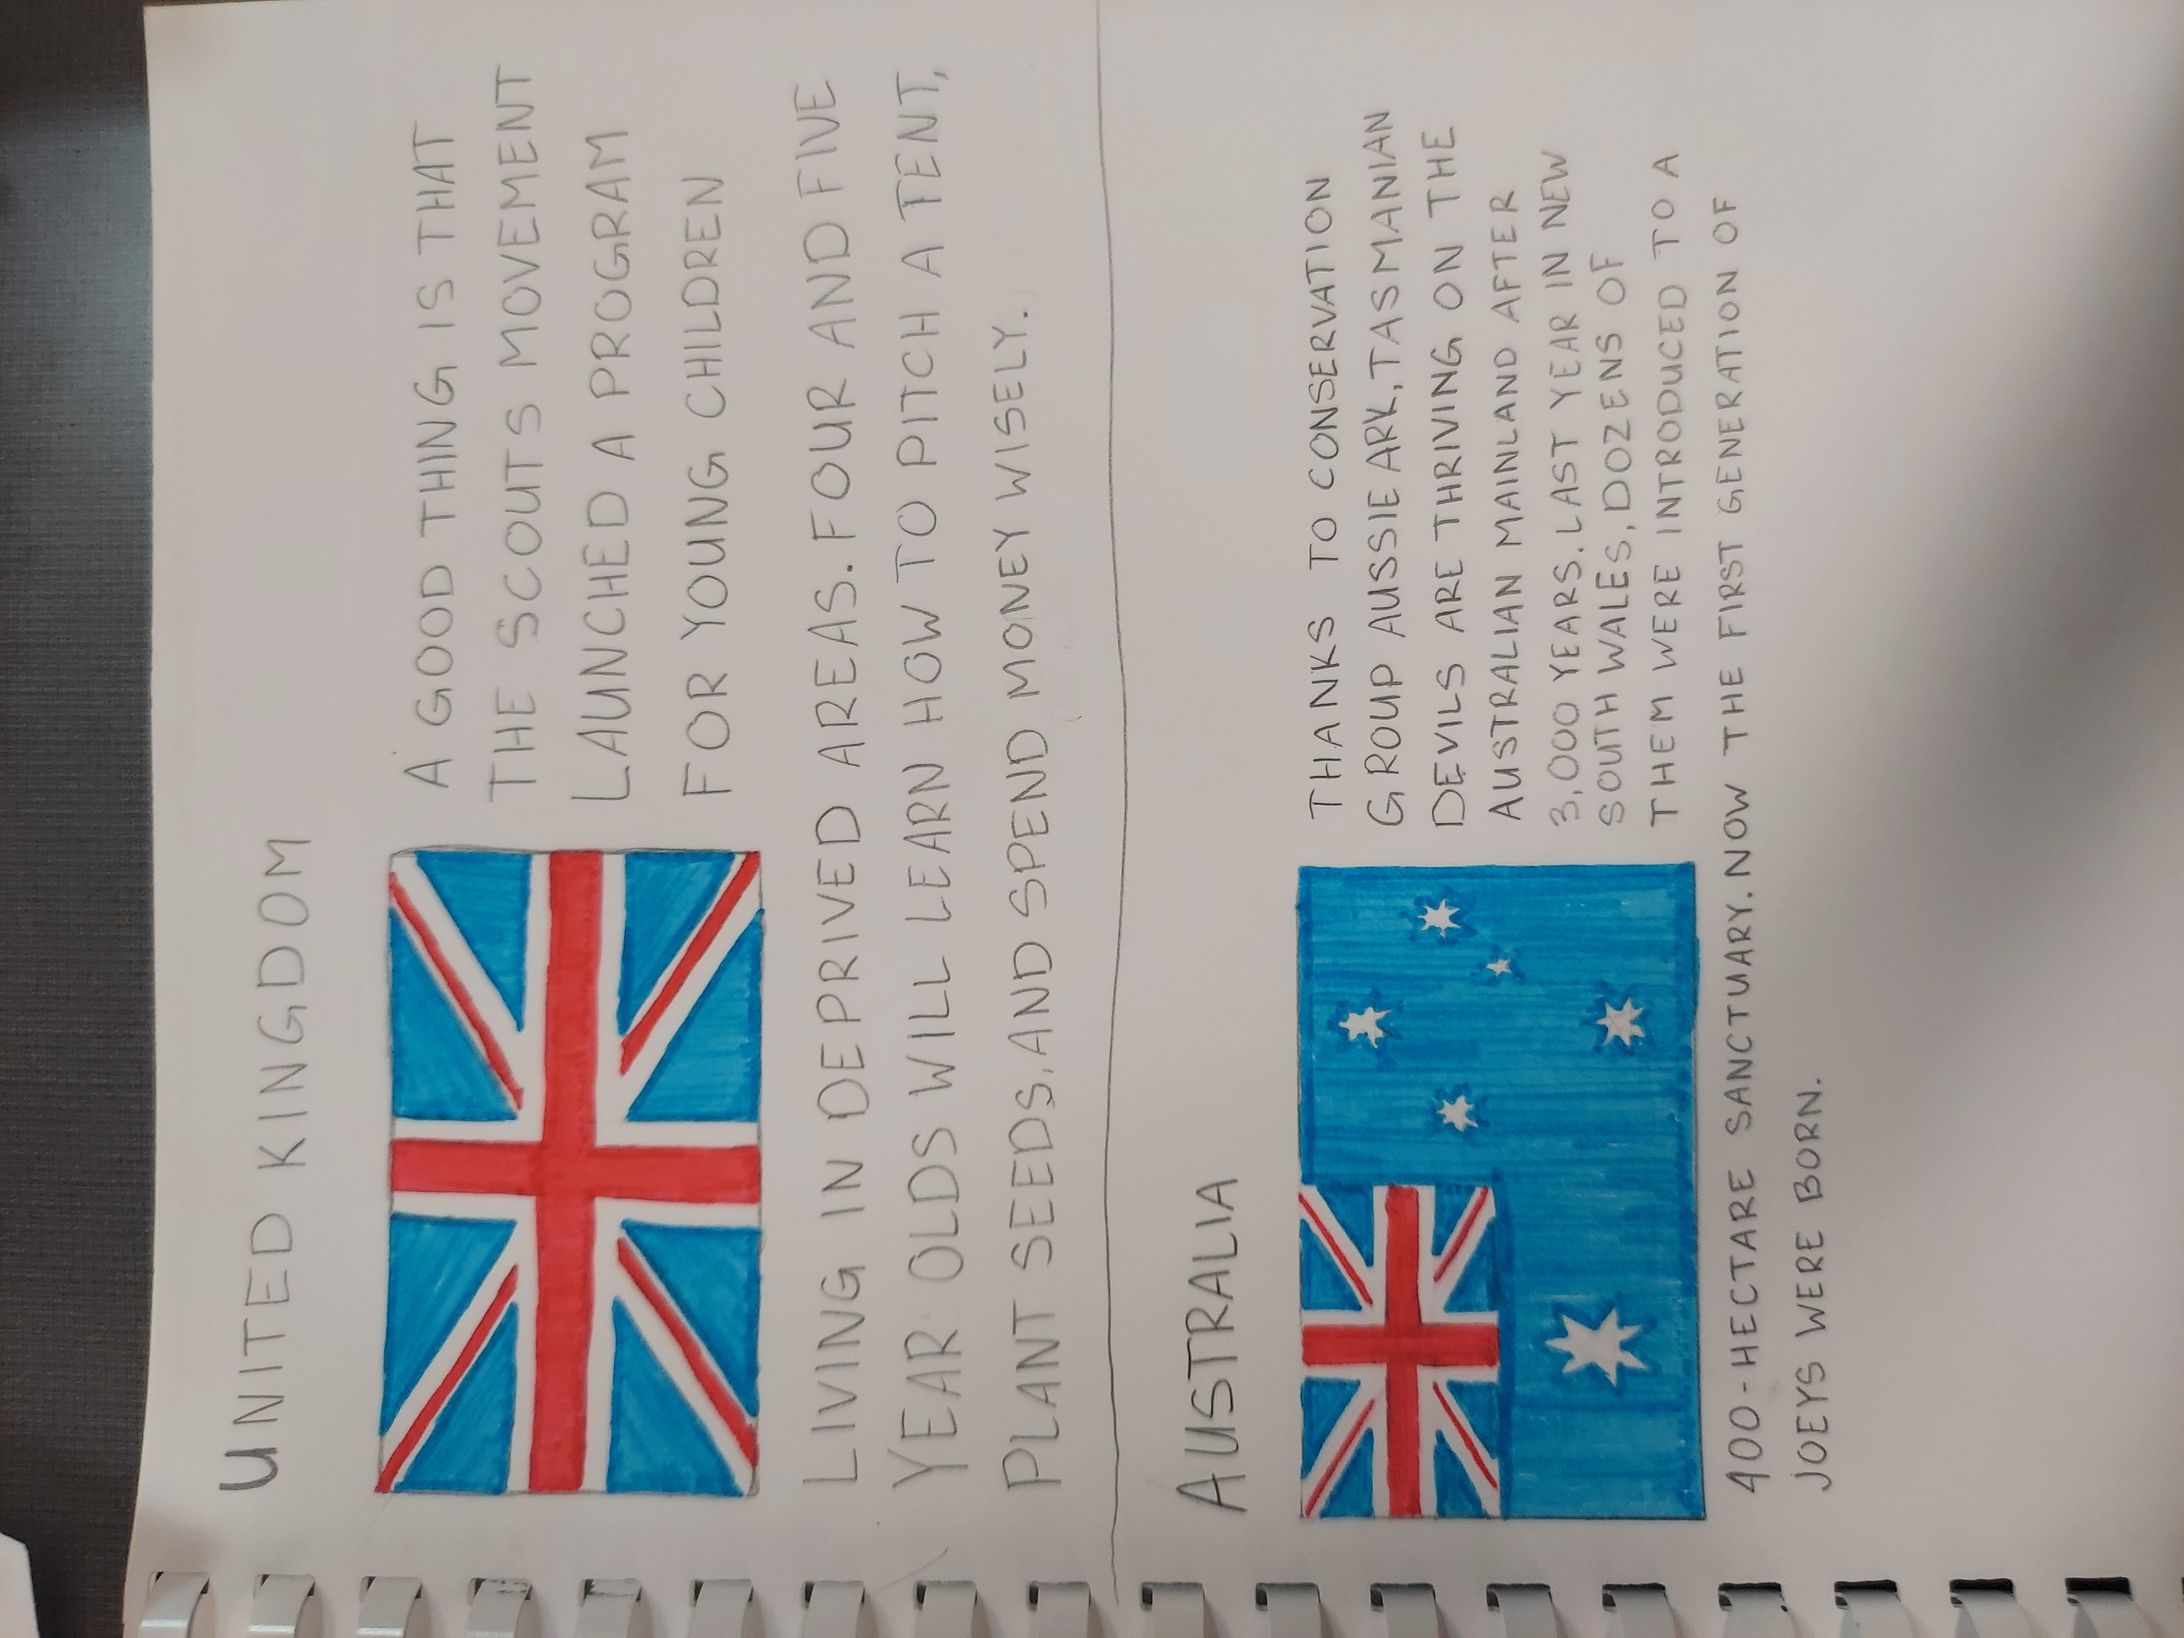 UNITED KINGDOM
A GOOD THING IS THAT
THE SCOUTS MOVEMENT
LAUNCHED A PROGRAM
FOR YOUNG CHILDREN
LIVING IN DEPRIVED AREAS. FOUR AND FIVE
YEAR OLDS WILL LEARN HOW TO PITCH A TENT,
PLANT SEEDS, AND SPEND MONEY WISELY.
AUSTRALIA
THANKS TO CONSERVATION
GROUP AUSSIE ARK, TASMANIAN
DEVILS ARE THRIVING ON THE
AUSTRALIAN MAINLAND AFTER
3,000 YEARS. LAST YEAR IN NEW
SOUTH WALES, DOZENS OF
THEM WERE INTRODUCED TO A
400-HECTARE SANCTUARY. NOW THE FIRST GENERATION OF
JOEYS WERE BORN.